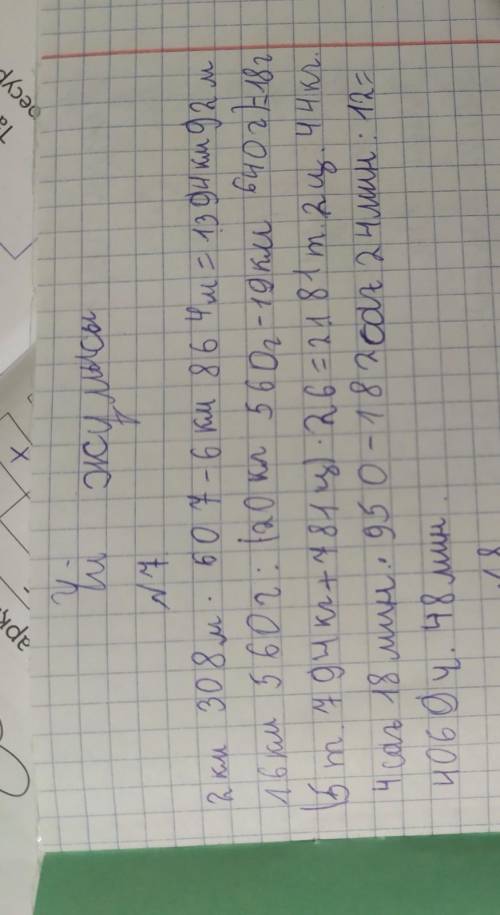 Үй жұмысы
№7
2км 308м · 607 - 6км 864м = 1394км 92м
16км 560г : (20кг 560г - 19км 640г) = 18г
(5т. 794кг + 781ц) · 26 = 2181т. 2ц. 44кг.
4сағ 18мин · 950 - 182сағ 24мин : 12 =
4060ч. 48мин.
18
х